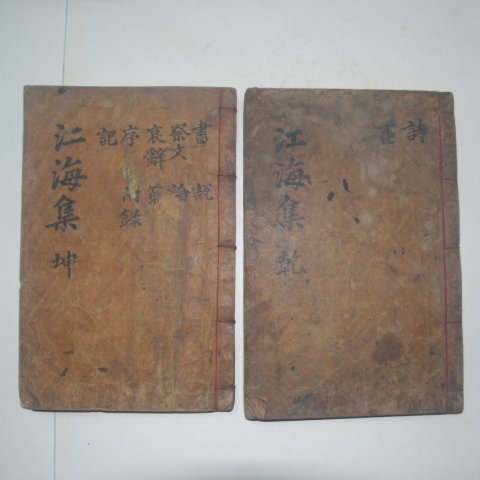 江海集 乾
詩
書
江海集 坤
書 説
祭文 論
哀辭 策
序 附錄
記